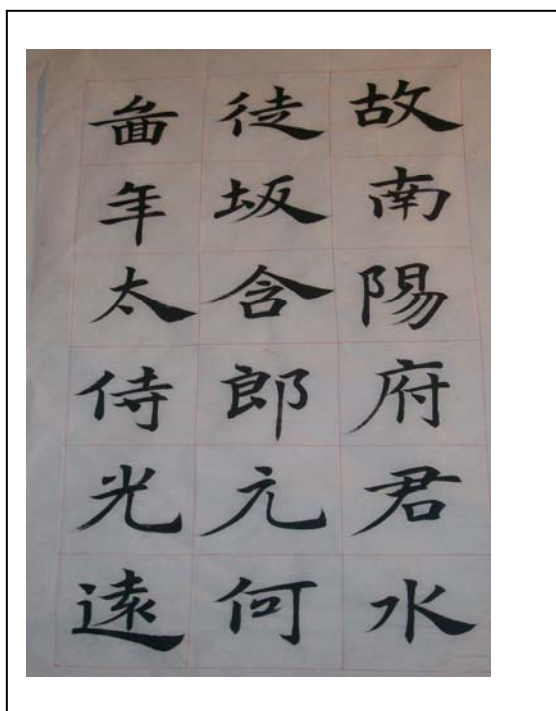 故南陽府君水
徒坂含郎元何
年太侍光遠